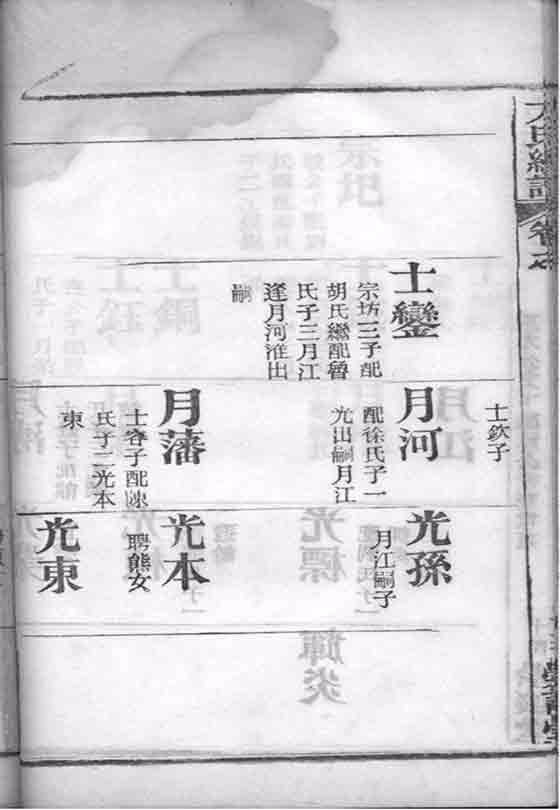 士鑾
宗坊三子配
胡氏繼配魯
氏子三月江
逢月河淮出
嗣
士欽子
月河
配徐氏子一
光出嗣月江
月藩
士容子配陳
氏子二光本
東
光孫
月江嗣子
光本
聘熊女
光東